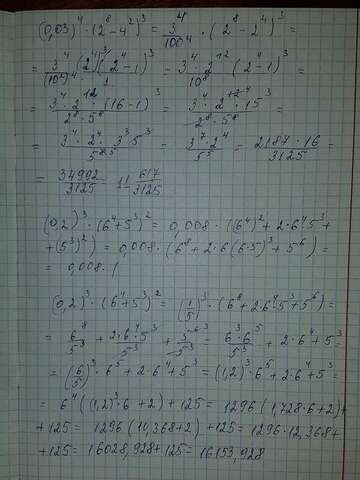 (0,03)^4 · (2^8 - 4^2)^3 = 3^4/100^4 · (2^8 - 2^4)^3 =
= 3^4 (2^4)^3 (2^4 - 1)^3 / (10^2)^4 · 1 = 3^4 · 2^12 / 10^8 · (2^4 - 1)^3
= 3^4 · 2^12 · (16 - 1)^3 / 2^8 · 5^8 = 3^4 · 2^12 4 · 15^3 / 2^8 · 5^8 =
= 3^4 · 2^4 · 3^3 5^3 / 5^8 = 3^7 · 2^4 / 5^5 = 2187 · 16 / 3125 =
= 34992/3125 = 11 617/3125
(0,2)^3 · (6^4 + 5^3)^2 = 0,008 · ((6^4)^2 + 2 · 6^4 · 5^3 +
+ (5^3)^2) = 0,008 · (6^8 + 2 · 6 (6 · 5)^3 + 5^6) =
= 0,008 · (
(0,2)^3 · (6^4 + 5^3)^2 = (1/5)^3 · (6^8 + 2 · 6^4 · 5^3 + 5^6) =
= 6^8/5^3 + 2 · 6^4 · 5^3/5^3 + 5^6 3/5^3 = 6^3 · 6^5/5^3 + 2 · 6^4 + 5^3 =
= (6/5)^3 · 6^5 + 2 · 6^4 + 5^3 = (1,2)^3 · 6^5 + 2 · 6^4 + 5^3 =
= 6^4 ((1,2)^3 · 6 + 2) + 125 = 1296 (1,728 · 6 + 2) +
+ 125 = 1296 (10,368 + 2) + 125 = 1296 · 12,368 +
+ 125 = 16028,928 + 125 = 16153,928